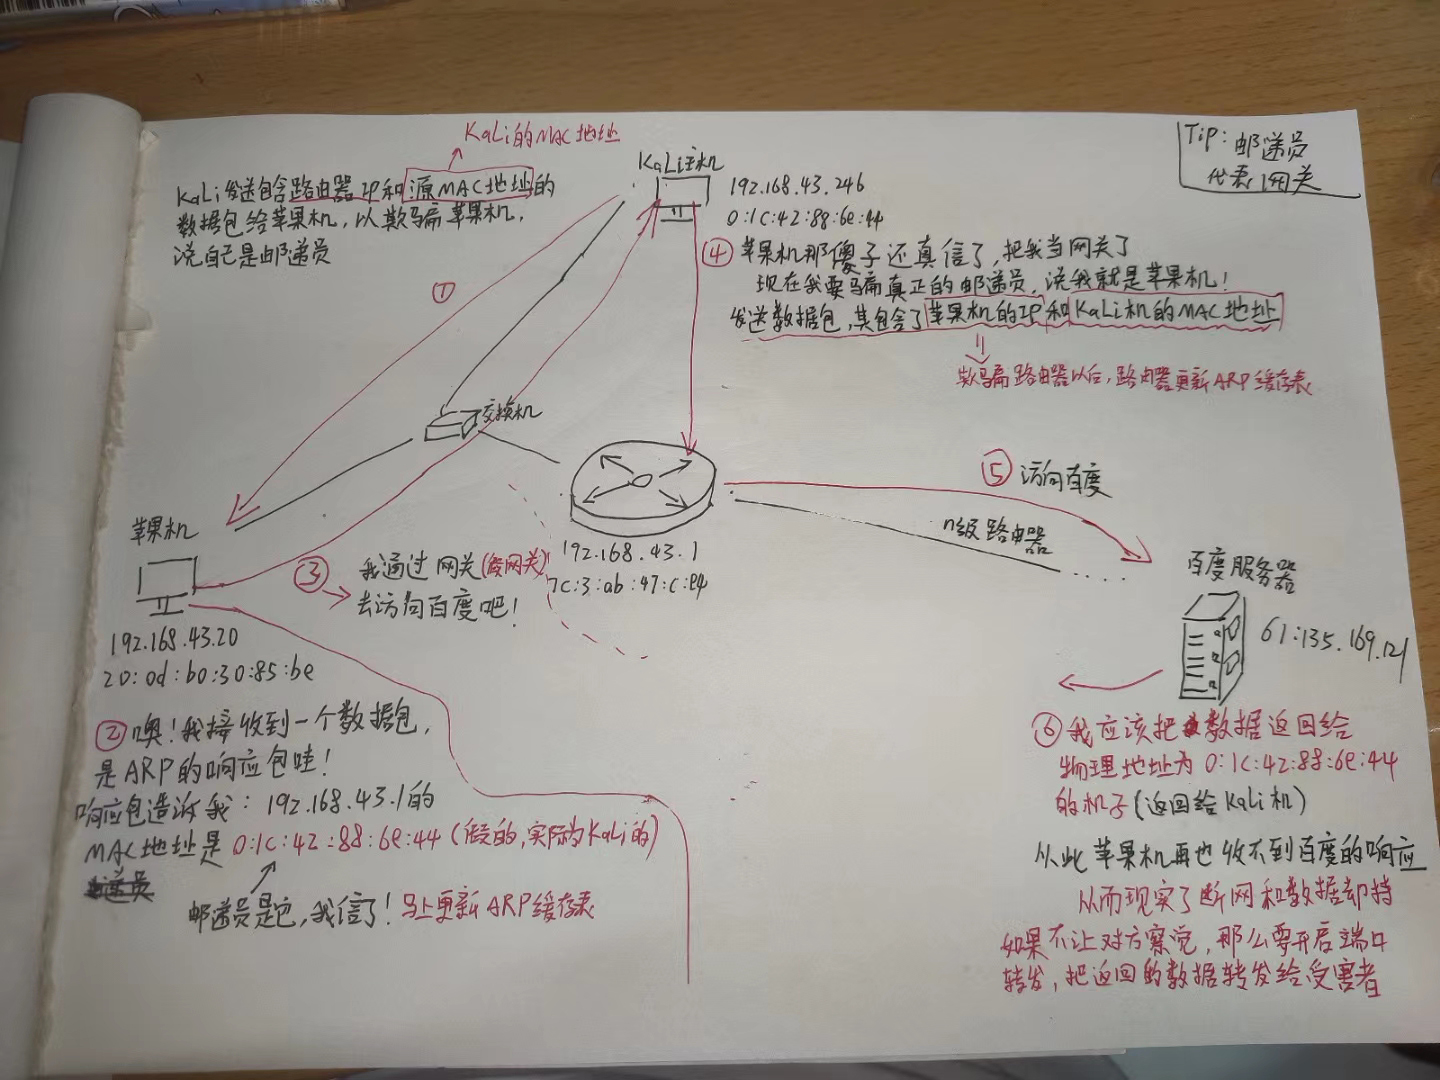 Tip: 邮递员
代表网关
KaLi的MAC地址
KaLi发送包含路由器IP和源MAC地址的
数据包给苹果机，以欺骗苹果机，
说自己是邮递员
KaLi主机
192.168.43.246
0:1c:42:88:6e:44
①
④ 苹果机那傻子还真信了，把我当网关了
现在我要骗真正的邮递员，说我就是苹果机！
发送数据包，其包含了苹果机的IP和KaLi机的MAC地址
欺骗路由器以后，路由器更新ARP缓存表
交换机
⑤ 访问百度
n级路由器
192.168.43.1
7c:3:ab:47:c:e4
苹果机
192.168.43.20
20:0d:b0:30:85:be
③ 我通过网关(假网关)
去访问百度吧！
百度服务器
61:135.169.121
② 噢！我接收到一个数据包，
是ARP的响应包哇！
响应包告诉我：192.168.43.1的
MAC地址是0:1c:42:88:6e:44 (假的,实际为KaLi的)
邮递员是它，我信了！马上更新ARP缓存表
⑥ 我应该把数据返回给
物理地址为 0:1c:42:88:6e:44
的机子(返回给Kali机)
从此苹果机再也收不到百度的响应
从而现实了断网和数据却持
如果不让对方察觉，那么要开启端口
转发，把返回的数据转发给受害者